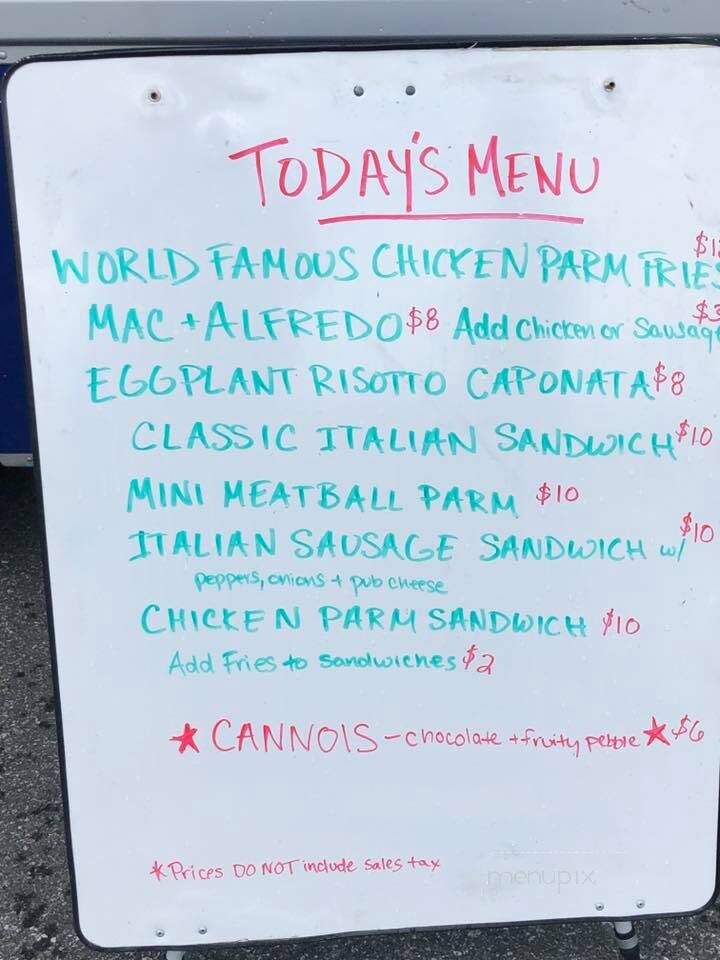 TODAY'S MENU
WORLD FAMOUS CHICKEN PARM FRIES
MAC + ALFREDO $8 Add Chicken or Sausage $3
EGGPLANT RISOTTO CAPONATA $8
CLASSIC ITALIAN SANDWICH $10
MINI MEATBALL PARM $10
ITALIAN SAUSAGE SANDWICH w/ $10
peppers, onions + pub cheese
CHICKEN PARM SANDWICH $10
Add Fries to sandwiches $2
* CANNOIS - chocolate + fruity pebble * $6
* Prices DO NOT include sales tax
menupix